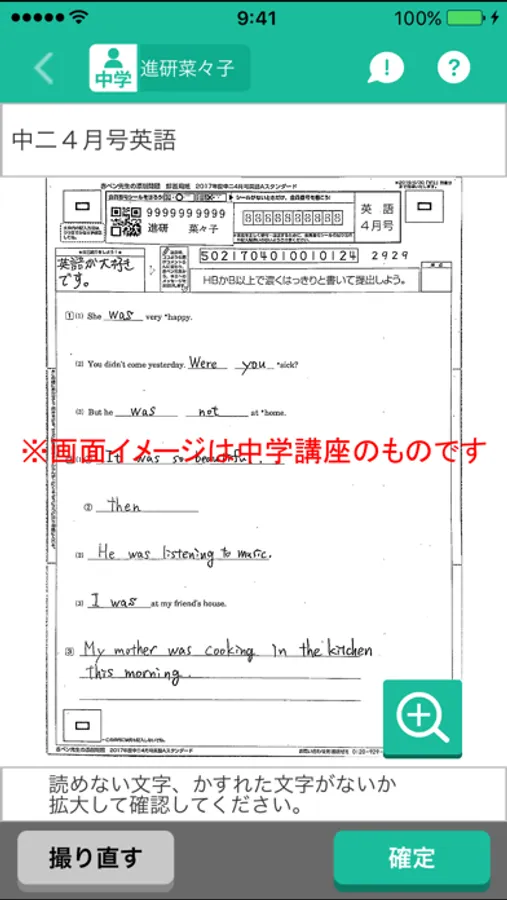 9:41
100%
中学 進研菜々子
中二4月号英語
赤ペン先生の添削問題 解答用紙 2017年度中二4月号英語Aスタンダード
99999999999
進研 菜々子
英語
4月号
英語が大好き
です。
5021704010010124 2929
HBかB以上で濃くはっきりと書いて提出しよう。
1 (1) She was very *happy.
(2) You didn't come yesterday. Were you *sick?
(3) But he was not at *home.
※画面イメージは中学講座のものです
It was so beautiful.
② then
(2) He was listening to music.
(3) I was at my friend's house.
3 My mother was cooking in the kitchen
this morning.
赤ペン先生の添削問題 2017年度中二4月号英語Aスタンダード
読めない文字、かすれた文字がないか
拡大して確認してください。
撮り直す 確定